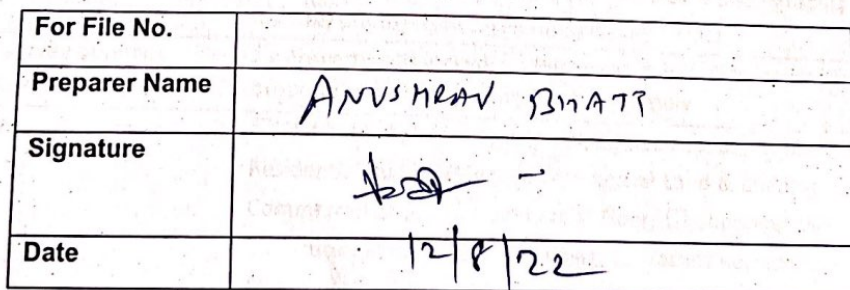 For File No.
Preparer Name ANUSHRAV BHATT
Signature
Date 12/8/22